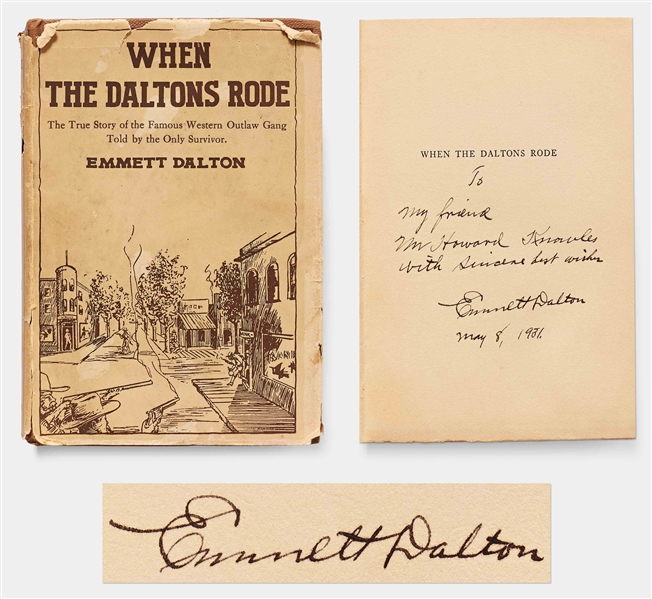 WHEN
THE DALTONS RODE
The True Story of the Famous Western Outlaw Gang
Told by the Only Survivor.
EMMETT DALTON
WHEN THE DALTONS RODE
To
My friend
Mr Howard Knowles
with sincere best wishes
Emmett Dalton
May 8, 1931.
Emmett Dalton